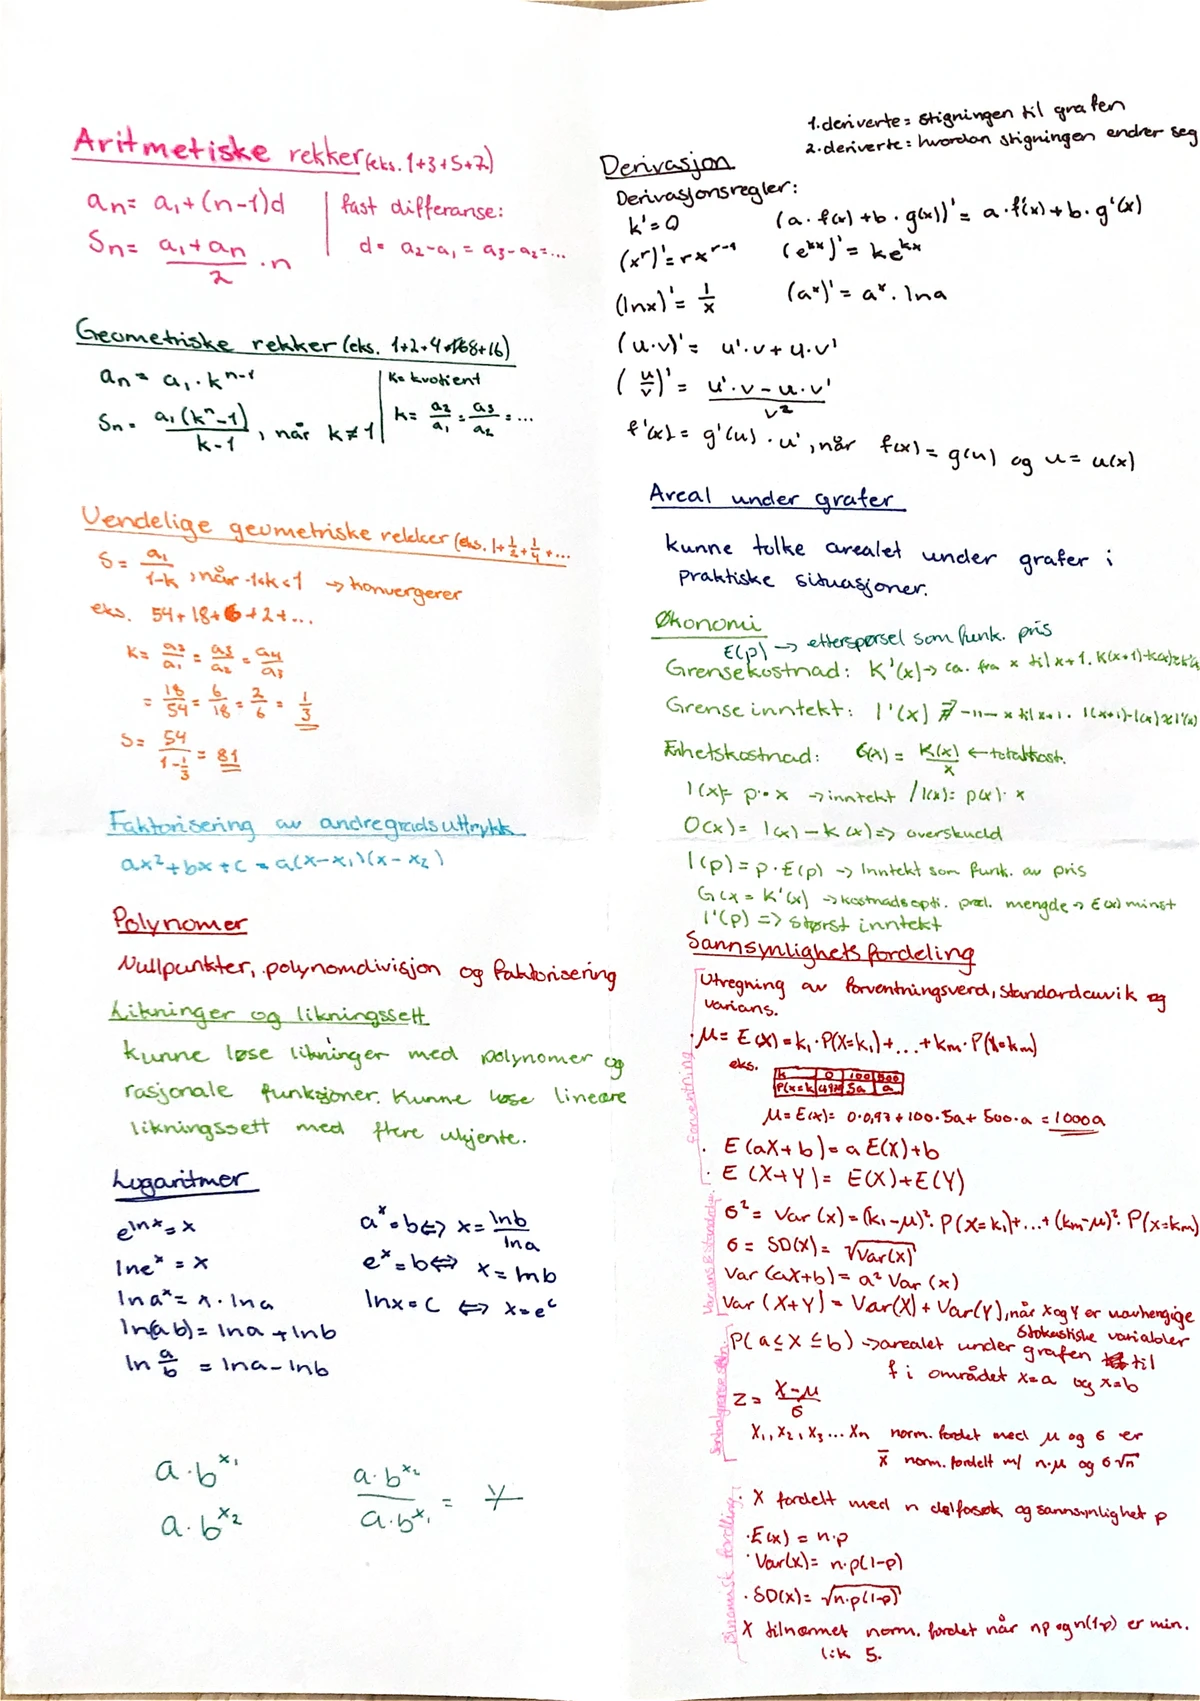 Aritmetiske rekker (eks. 1+3+5+7)
an = a1 + (n-1)d
Sn = (a1 + an)/2 · n
fast differanse:
d = a2-a1 = a3-a2 = ...
Geometriske rekker (eks. 1+2+4+8+16)
an = a1 · k^(n-1)
Sn = a1(k^n - 1)/(k-1), når k ≠ 1
k = kvotient
k = a2/a1 = a3/a2 = ...
Uendelige geometriske rekker (eks. 1+1/2+1/4+...
S = a1/(1-k), når -1<k<1 → konvergerer
eks. 54+18+6+2+...
k = a2/a1 = a3/a2 = a4/a3
= 18/54 = 6/18 = 2/6 = 1/3
S = 54/(1-1/3) = 81
Faktorisering av andregradsuttrykk
ax²+bx+c = a(x-x1)(x-x2)
Polynomer
Nullpunkter, polynomdivisjon og faktorisering
Likninger og likningssett
kunne løse likninger med polynomer og
rasjonale funksjoner. Kunne løse lineære
likningssett med flere ukjente.
Logaritmer
e^(lnx) = x
lne^x = x
lna^x = x · lna
ln(ab) = lna + lnb
ln a/b = lna - lnb
a^x = b ⇔ x = lnb/lna
e^x = b ⇔ x = lnb
lnx = c ⇔ x = e^c
a·b^x1
a·b^x2
(a·b^x2)/(a·b^x1) =
1. deriverte = stigningen til grafen
2. deriverte = hvordan stigningen endrer seg
Derivasjon
Derivasjonsregler:
k' = 0
(a·f(x)+b·g(x))' = a·f'(x)+b·g'(x)
(x^r)' = rx^(r-1)
(e^(kx))' = ke^(kx)
(lnx)' = 1/x
(a^x)' = a^x · lna
(u·v)' = u'·v + u·v'
(u/v)' = (u'·v - u·v')/v²
f'(x) = g'(u)·u', når f(x) = g(u) og u = u(x)
Areal under grafer
kunne tolke arealet under grafer i
praktiske situasjoner.
Økonomi
E(p) → etterspørsel som funk. pris
Grensekostnad: K'(x) → ca. fra x til x+1. K(x+1)-K(x)≈K'(x)
Grenseinntekt: I'(x) → -11- x til x+1. I(x+1)-I(x)≈I'(x)
Enhetskostnad: E(x) = K(x)/x ← totalkost.
I(x) = p·x → inntekt / I(x) = p(x)·x
O(x) = I(x)-K(x) => overskudd
I(p) = p·E(p) → Inntekt som funk. av pris
G(x = K'(x) → kostnadsopti. prod. mengde → E(x) minst
I'(p) => størst inntekt
Sannsynlighetsfordeling
Utregning av forventningsverd, standardavvik og
varians.
forventning
· μ = E(X) = k1·P(X=k1)+...+km·P(X=km)
eks.
k 0 100 500
P(X=k 0,97 5a a
μ = E(X) = 0·0,97+100·5a+500·a = 1000a
· E(aX+b) = aE(X)+b
· E(X+Y) = E(X)+E(Y)
σ² = Var(x) = (k1-μ)²·P(X=k1)+...+(km-μ)²·P(X=km)
σ = SD(X) = √Var(x)
Var(aX+b) = a² Var(x)
Var(X+Y) = Var(X)+Var(Y), når X og Y er uavhengige
stokastiske variabler
P(a≤X≤b) → arealet under grafen til
f i området x=a og x=b
Z = (X-μ)/σ
X1, X2, X3 ... Xn norm. fordet med μ og σ er
x̄ norm. fordelt m/ n·μ og σ√n
Binomisk fordling
· X fordelt med n delforsøk og sannsynlighet p
· E(x) = n·p
· Var(x) = n·p(1-p)
· SD(X) = √n·p(1-p)
X tilnærmet norm. fordet når np og n(1-p) er min.
lik 5.